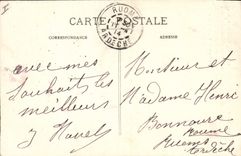 CARTE POSTALE
CORRESPONDANCE
ADRESSE
RUOMS
14
ARDÈCHE
avec mes
souhaits les
meilleurs
J Havel
Monsieur et
Madame Henri
Bonnaure
Ruoms
Ardèche